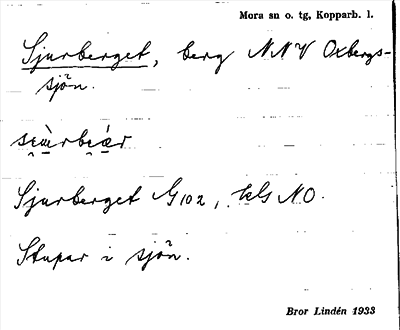 Mora sn o. tg, Kopparb. l.
Sjurberget, berg NNV Oxbergs-
sjön.
Sjurberget G102, kls NO.
Stupar i sjön.
Bror Lindén 1933